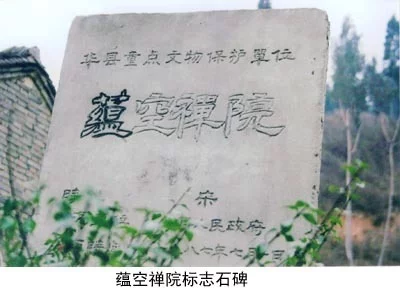 华县重点文物保护單位
蕴空禪院
宋
民政府
八七年七月
蕴空禅院标志石碑